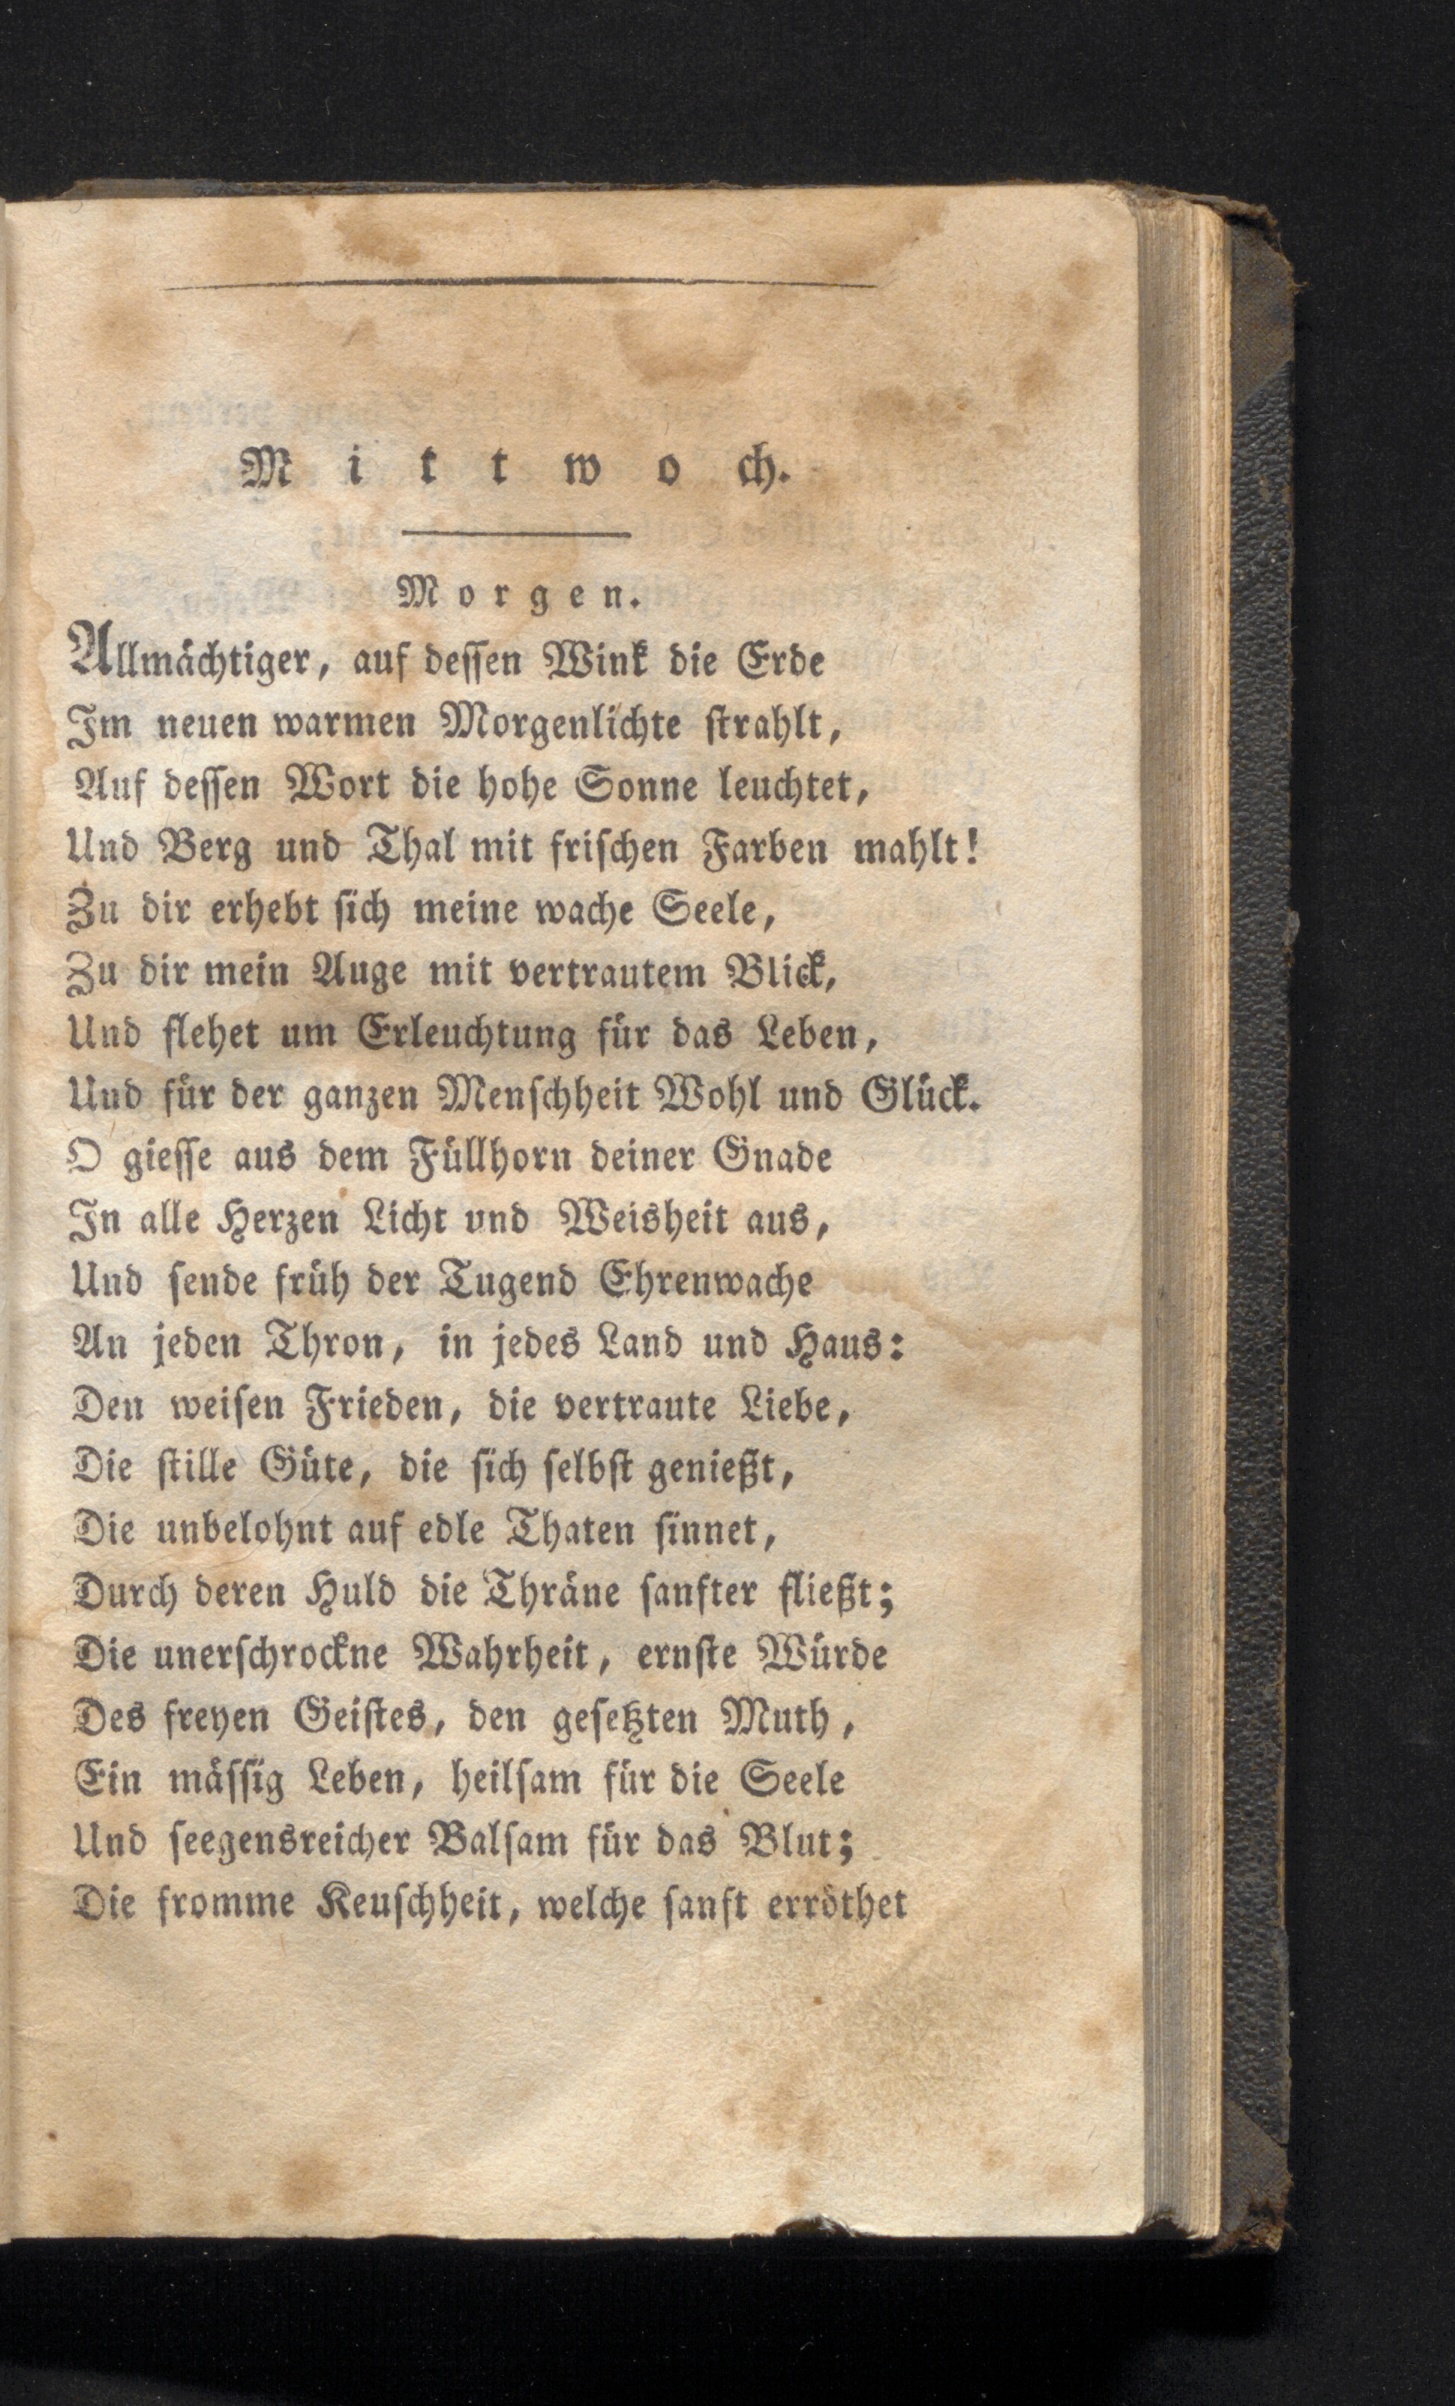 Mittwoch.
Morgen.
Allmächtiger, auf deſſen Wink die Erde
Im neuen warmen Morgenlichte ſtrahlt,
Auf deſſen Wort die hohe Sonne leuchtet,
Und Berg und Thal mit friſchen Farben mahlt!
Zu dir erhebt ſich meine wache Seele,
Zu dir mein Auge mit vertrautem Blick,
Und flehet um Erleuchtung für das Leben,
Und für der ganzen Menſchheit Wohl und Glück.
O gieſſe aus dem Füllhorn deiner Gnade
In alle Herzen Licht vnd Weisheit aus,
Und ſende früh der Tugend Ehrenwache
An jeden Thron, in jedes Land und Haus:
Den weiſen Frieden, die vertraute Liebe,
Die ſtille Güte, die ſich ſelbſt genießt,
Die unbelohnt auf edle Thaten ſinnet,
Durch deren Huld die Thräne ſanfter fließt;
Die unerſchrockne Wahrheit, ernſte Würde
Des freyen Geiſtes, den geſetzten Muth,
Ein mäſſig Leben, heilſam für die Seele
Und ſeegensreicher Balſam für das Blut;
Die fromme Keuſchheit, welche ſanft erröthet